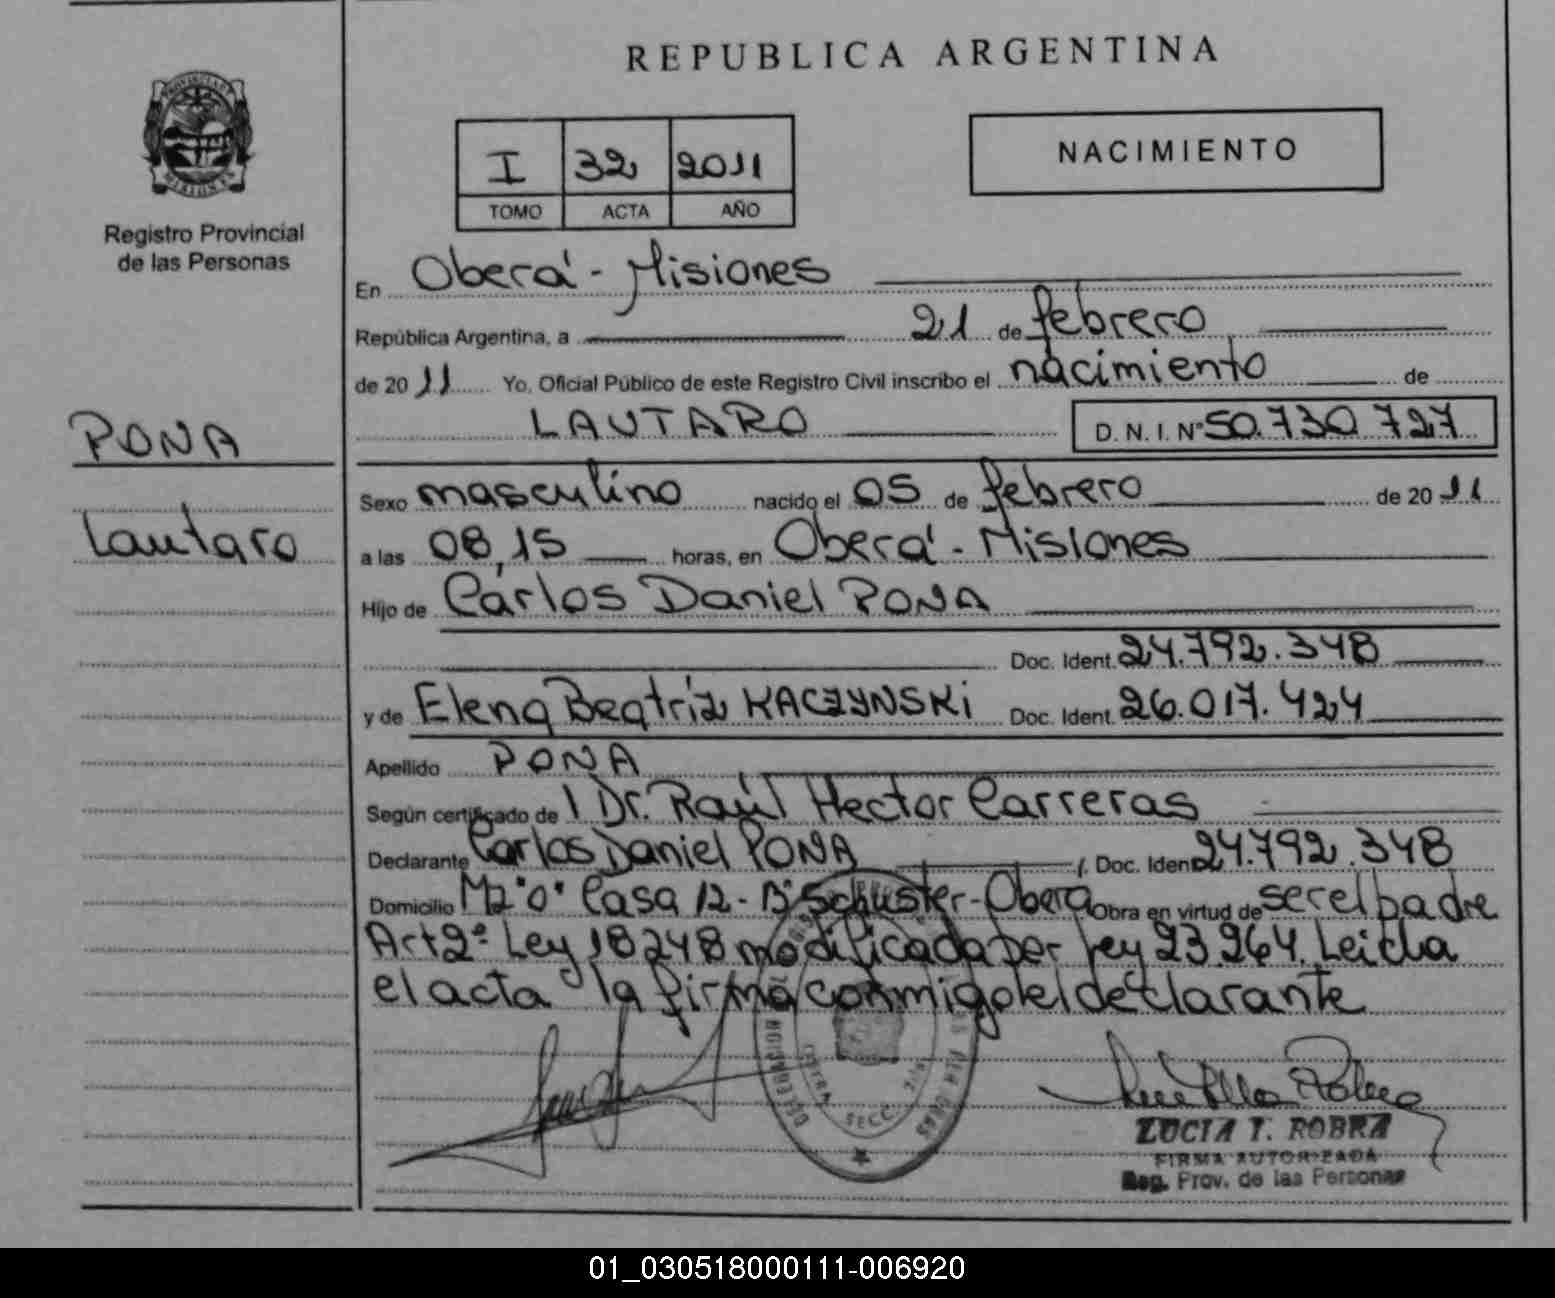 REPUBLICA ARGENTINA
NACIMIENTO
I 32 2011
TOMO ACTA AÑO
Registro Provincial
de las Personas
PONA
Lautaro
En Oberá - Misiones
República Argentina, a 21 de febrero
de 2011 Yo, Oficial Público de este Registro Civil inscribo el nacimiento de
LAUTARO D. N. I. Nº 50.730.727
Sexo masculino nacido el 05 de febrero de 2011
a las 08,15 horas, en Oberá - Misiones
Hijo de Carlos Daniel PONA
Doc. Ident. 24.792.348
y de Elena Beatriz KACZYNSKi Doc. Ident. 26.017.424
Apellido PONA
Según certificado de 1 Dr. Raúl Hector Carreras
Declarante Carlos Daniel PONA Doc. Ident 24.792.348
Domicilio Mz "O" Casa 12 - Bº Schuster - Oberá Obra en virtud de ser el padre
Art 2º Ley 18248 modificada por Ley 23.264. Leida
el acta la firma conmigo el declarante
SECC
LUCIA I. ROBRA
FIRMA AUTORIZADA
Reg. Prov. de las Personas
01_030518000111-006920